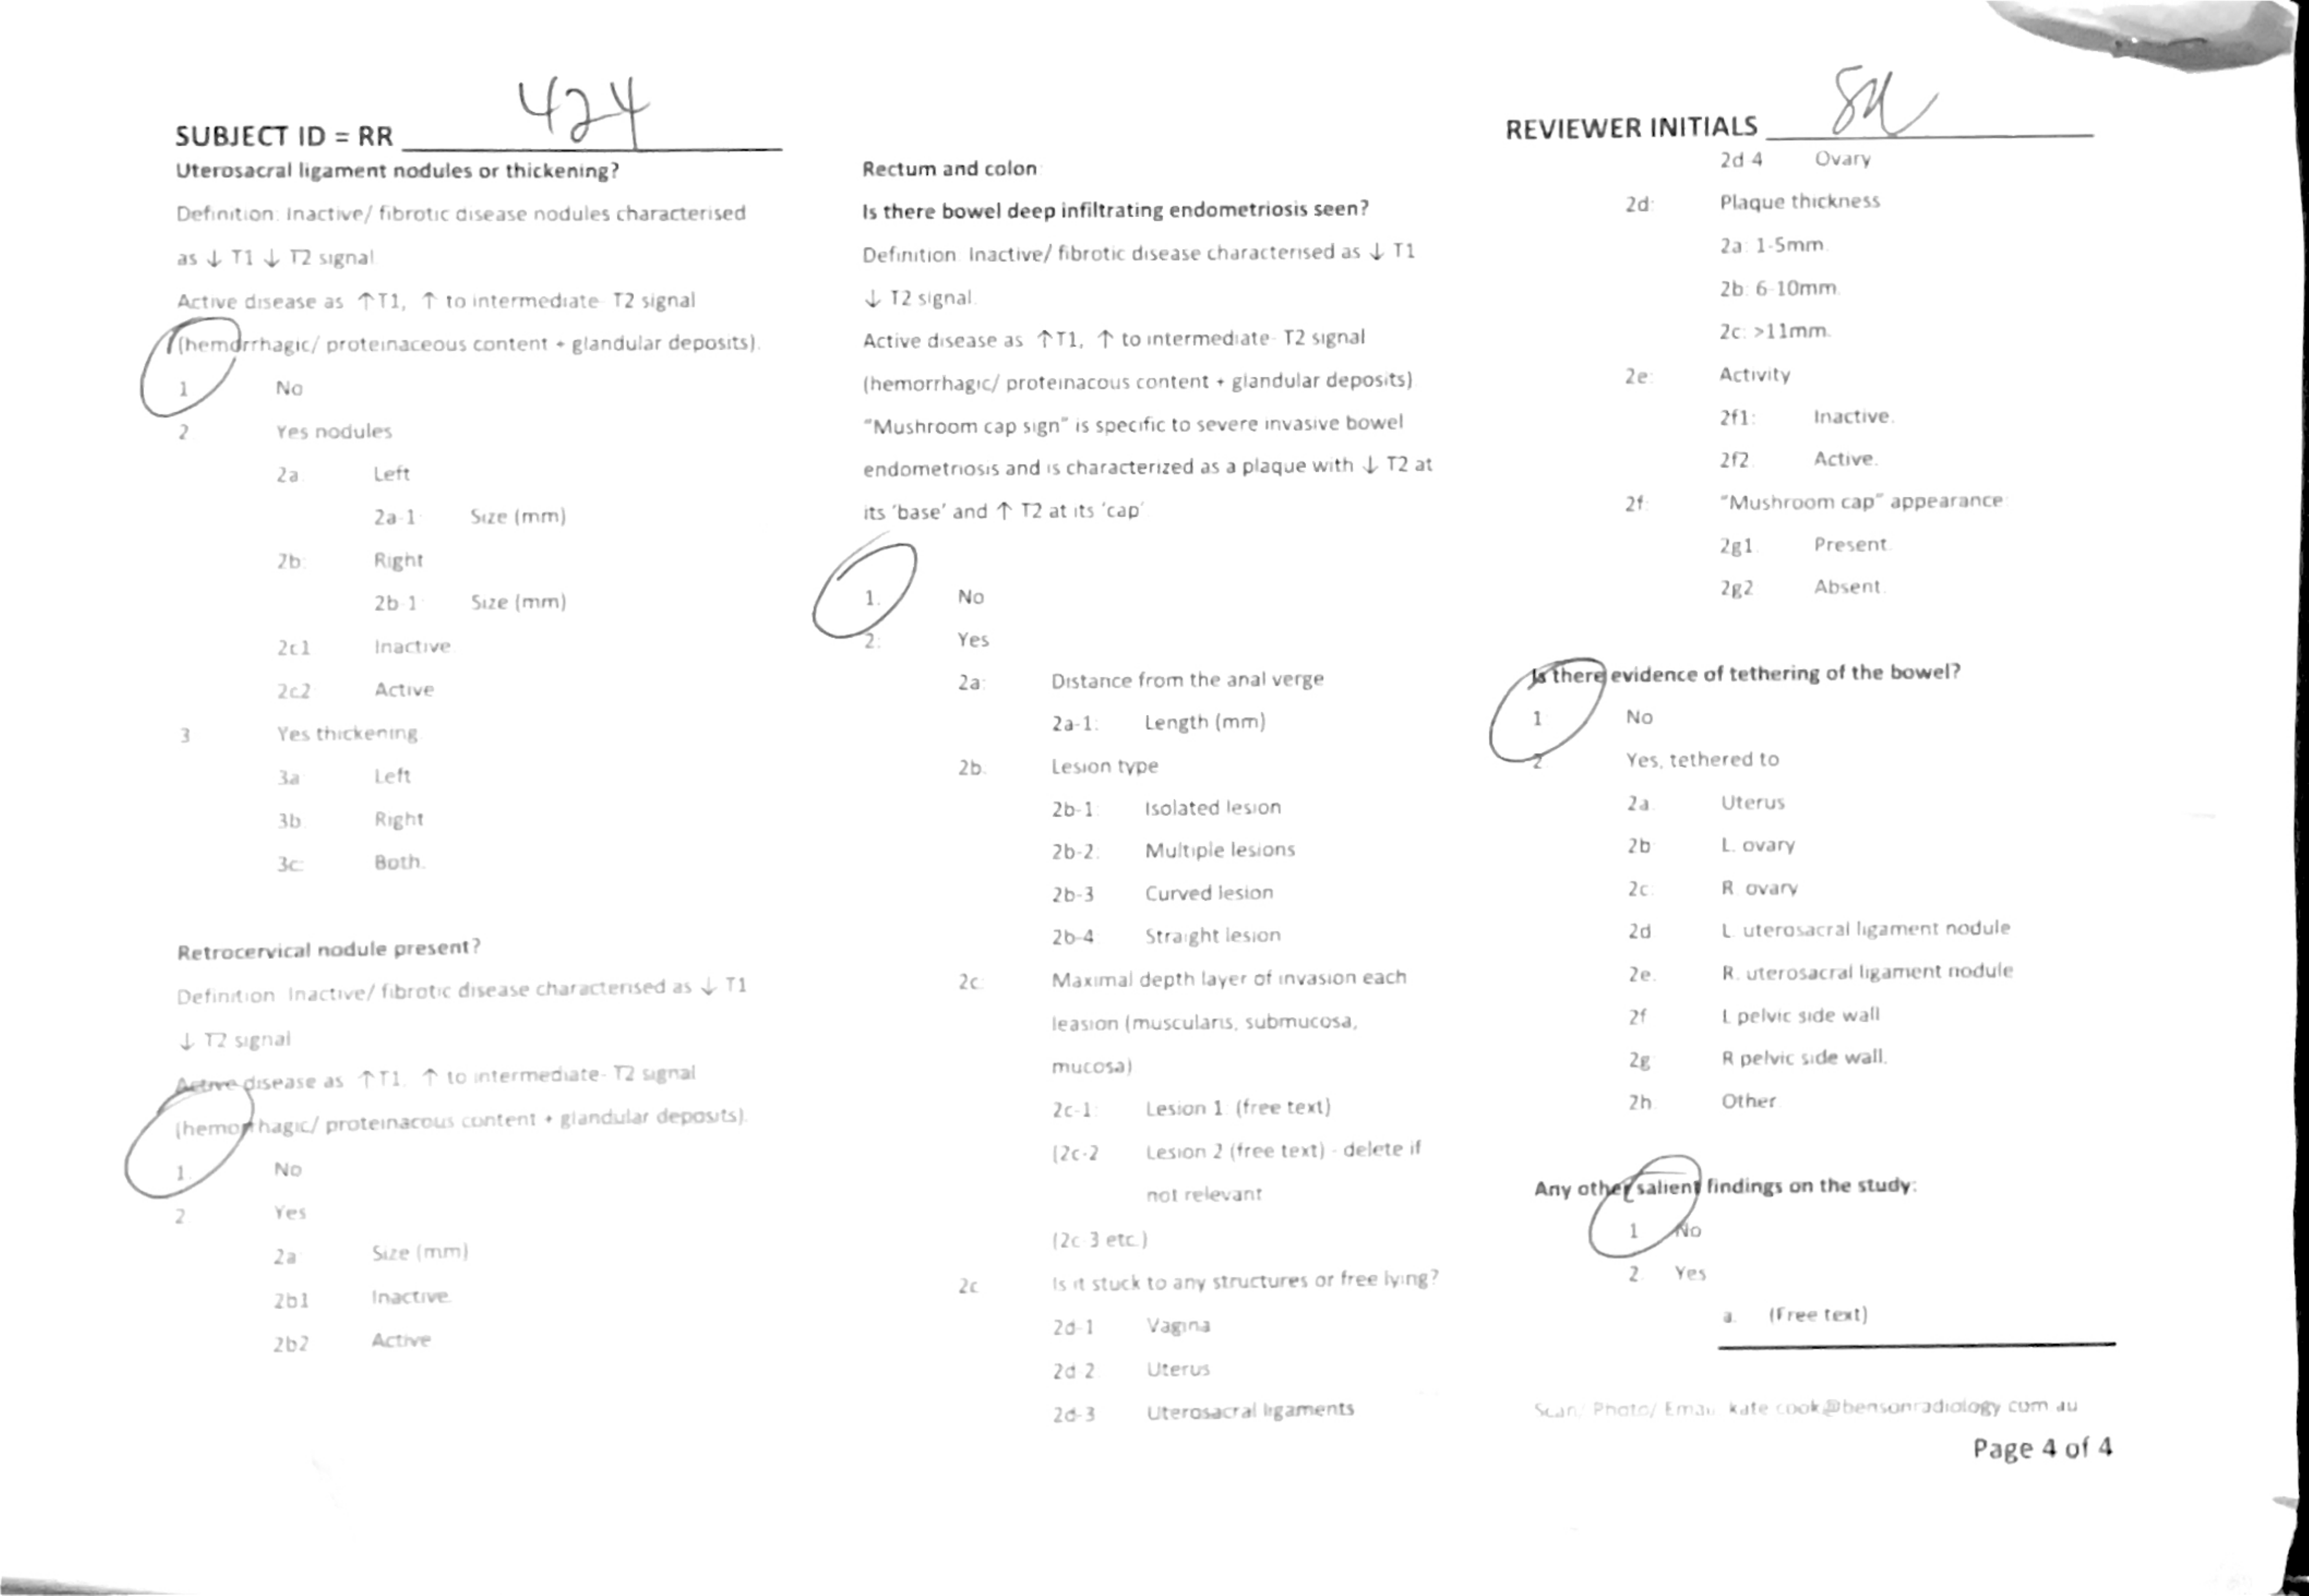 SUBJECT ID = RR 424
Uterosacral ligament nodules or thickening?
Definition: Inactive/ fibrotic disease nodules characterised
as ↓ T1 ↓ T2 signal
Active disease as ↑T1, ↑ to intermediate- T2 signal
(hemorrhagic/ proteinaceous content + glandular deposits).
1 No
2 Yes nodules
2a Left
2a-1: Size (mm)
2b: Right
2b-1: Size (mm)
2c1 Inactive
2c2 Active
3 Yes thickening
3a Left
3b Right
3c: Both.
Retrocervical nodule present?
Definition Inactive/ fibrotic disease characterised as ↓ T1
↓ T2 signal
Active disease as ↑T1, ↑ to intermediate- T2 signal
(hemorrhagic/ proteinacous content + glandular deposits).
1. No
2 Yes
2a Size (mm)
2b1 Inactive.
2b2 Active
Rectum and colon
Is there bowel deep infiltrating endometriosis seen?
Definition Inactive/ fibrotic disease characterised as ↓ T1
↓ T2 signal.
Active disease as ↑T1, ↑ to intermediate- T2 signal
(hemorrhagic/ proteinacous content + glandular deposits)
"Mushroom cap sign" is specific to severe invasive bowel
endometriosis and is characterized as a plaque with ↓ T2 at
its 'base' and ↑ T2 at its 'cap'
1. No
2. Yes
2a: Distance from the anal verge
2a-1: Length (mm)
2b. Lesion type
2b-1: Isolated lesion
2b-2. Multiple lesions
2b-3 Curved lesion
2b-4 Straight lesion
2c: Maximal depth layer of invasion each
leasion (muscularis, submucosa,
mucosa)
2c-1: Lesion 1: (free text)
(2c-2 Lesion 2 (free text) - delete if
not relevant
(2c-3 etc.)
2c Is it stuck to any structures or free lying?
2d-1 Vagina
2d-2 Uterus
2d-3 Uterosacral ligaments
REVIEWER INITIALS
2d-4 Ovary
2d: Plaque thickness
2a: 1-5mm.
2b: 6-10mm.
2c: >11mm.
2e: Activity
2f1: Inactive.
2f2. Active.
2f: "Mushroom cap" appearance
2g1. Present.
2g2 Absent.
Is there evidence of tethering of the bowel?
1 No
2 Yes, tethered to
2a. Uterus
2b L. ovary
2c: R ovary
2d L uterosacral ligament nodule
2e. R. uterosacral ligament nodule
2f L pelvic side wall
2g R pelvic side wall.
2h Other
Any other salient findings on the study:
1 No
2. Yes
a. (Free text)
Scan/ Photo/ Email kate.cook@bensonradiology.com.au
Page 4 of 4